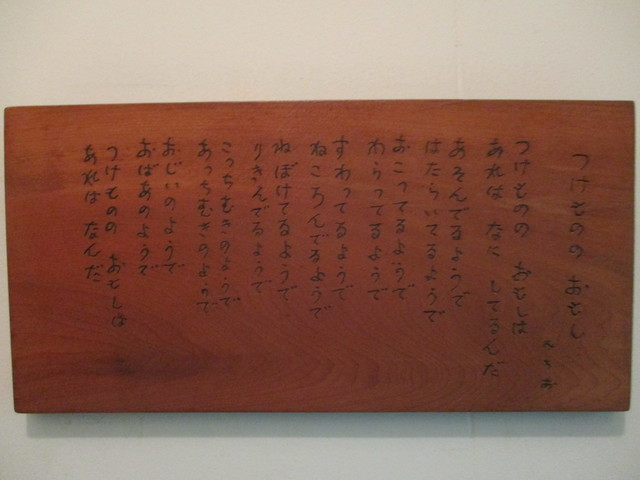 つけものの おもし
みちお
つけものの おもしは
あれは なに してるんだ
あそんでるようで
はたらいてるようで
おこってるようで
わらってるようで
すわってるようで
ねころんでるようで
ねぼけてるようで
りきんでるようで
こっちむきのようで
あっちむきのようで
おじいのようで
おばあのようで
つけものの おもしは
あれは なんだ